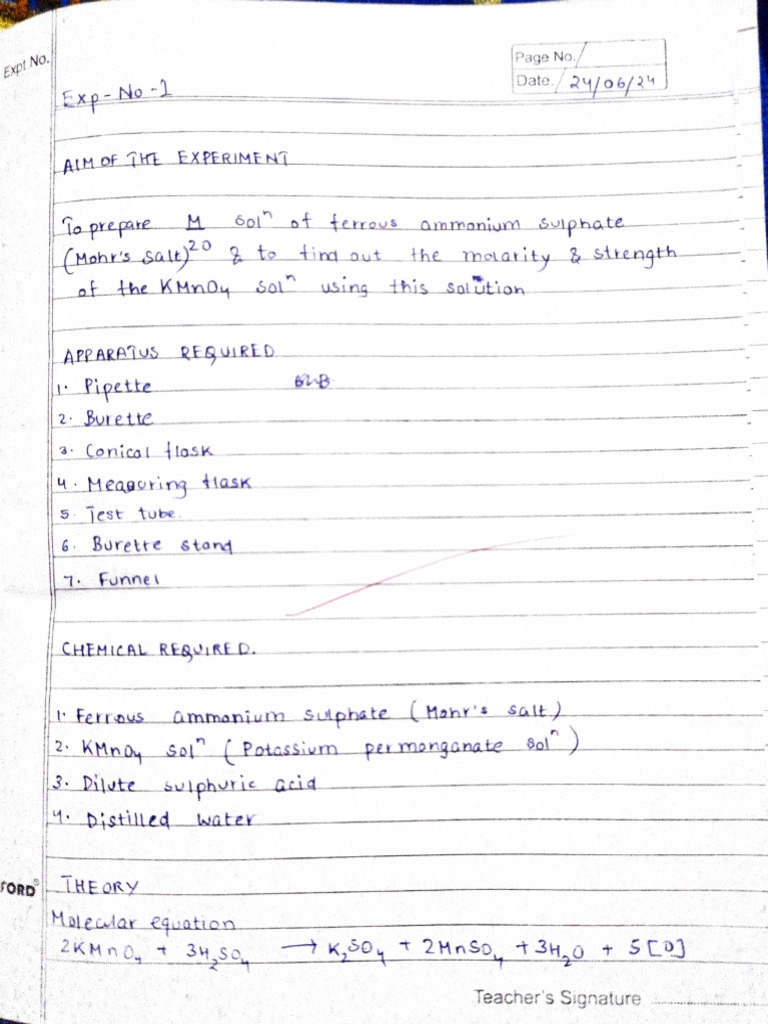 Expt No.
Page No.
Date. 24/06/24
Exp-No-1
AIM OF THE EXPERIMENT
To prepare M solⁿ of ferrous ammonium sulphate
(Mohr's salt) 20 & to find out the molarity & strength
of the KMnO₄ solⁿ using this solution
APPARATUS REQUIRED
1. Pipette
2. Burette
3. Conical flask
4. Measuring flask
5. Test tube.
6. Burette stand
7. Funnel
CHEMICAL REQUIRED.
1. Ferrous ammonium sulphate (Mohr's salt)
2. KMnO₄ solⁿ (Potassium permanganate solⁿ)
3. Dilute sulphuric acid
4. Distilled water
THEORY
Molecular equation
2KMnO₄ + 3H₂SO₄ → K₂SO₄ + 2MnSO₄ + 3H₂O + 5[O]
Teacher's Signature